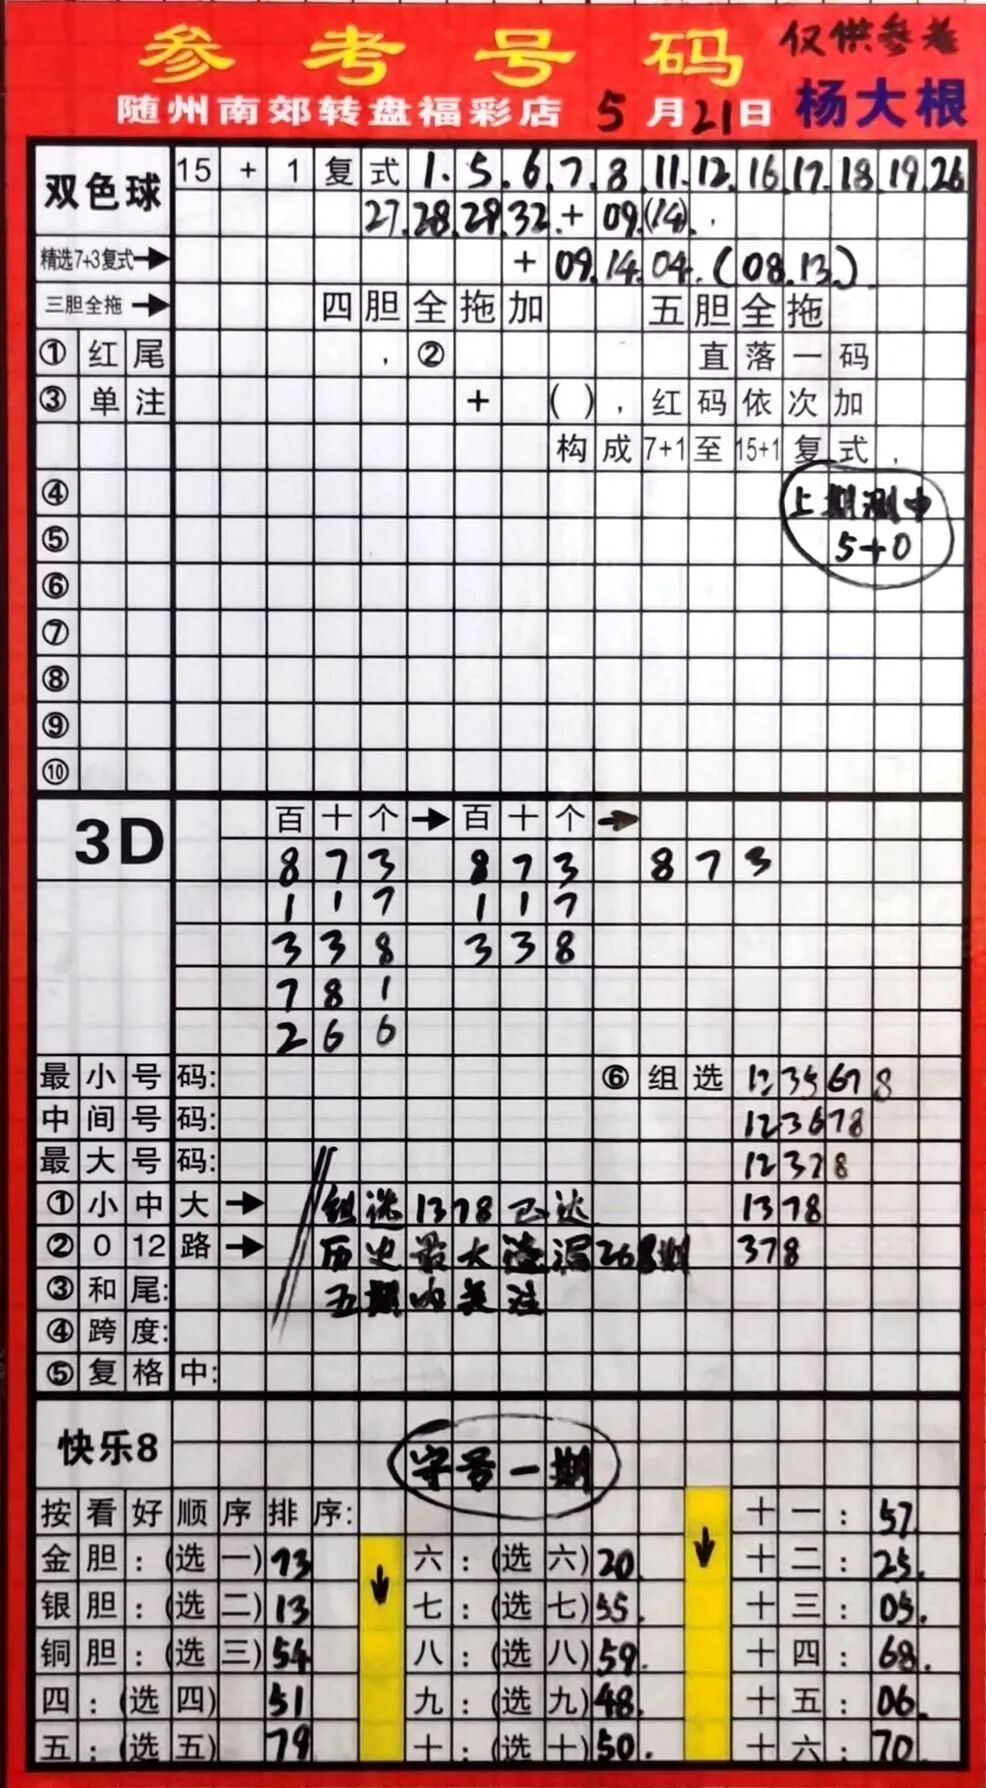 参考号码 仅供参考
随州南郊转盘福彩店 5月21日 杨大根
双色球 15+1复式 1.5.6.7.8.11.12.16.17.18.19.26
27.28.29.32.+09.(14).
精选7+3复式→ +09.14.04.(08.13)
三胆全拖→ 四胆全拖加 五胆全拖
①红尾 ,② 直落一码
③单注 + ( ),红码依次加
构成7+1至15+1复式,
④ 上期测中
⑤ 5+0
⑥
⑦
⑧
⑨
⑩
3D 百十个→百十个→
873 873 873
117 117
338 338
781
266
最小号码: ⑥组选 1235678
中间号码: 123678
最大号码: 12378
①小中大→ 组选1378已达 1378
②012路→ 历史最大遗漏268期 378
③和尾: 五期内关注
④跨度:
⑤复格中:
快乐8 守号一期
按看好顺序排序: 十一:57.
金胆:(选一)73 ↓ 六:(选六)20. ↓ 十二:25.
银胆:(选二)13 七:(选七)55. 十三:05.
铜胆:(选三)54 八:(选八)59. 十四:68.
四:(选四)51 九:(选九)48. 十五:06.
五:(选五)79 十:(选十)50. 十六:70.